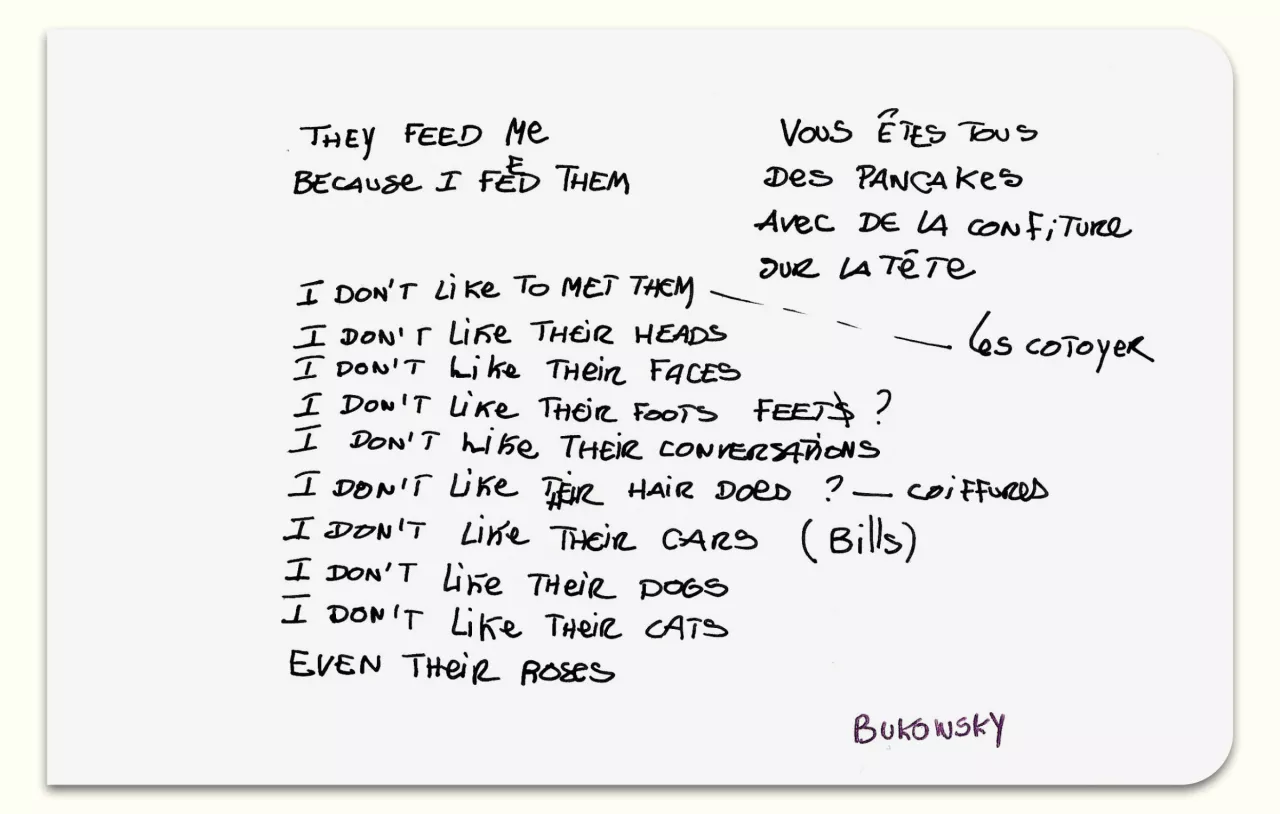 THEY FEED ME
BECAUSE I FEED THEM
VOUS ÊTES TOUS
DES PANCAKES
AVEC DE LA CONFITURE
SUR LA TÊTE
I DON'T LIKE TO MET THEM
Les COTOYER
I DON'T LIKE THEIR HEADS
I DON'T LIKE THEIR FACES
I DON'T LIKE THEIR FOOTS FEETS ?
I DON'T LIKE THEIR CONVERSATIONS
I DON'T LIKE THEIR HAIR DOED ? — COIFFURES
I DON'T LIKE THEIR CARS (Bills)
I DON'T LIKE THEIR DOGS
I DON'T LIKE THEIR CATS
EVEN THEIR ROSES
BUKOWSKY